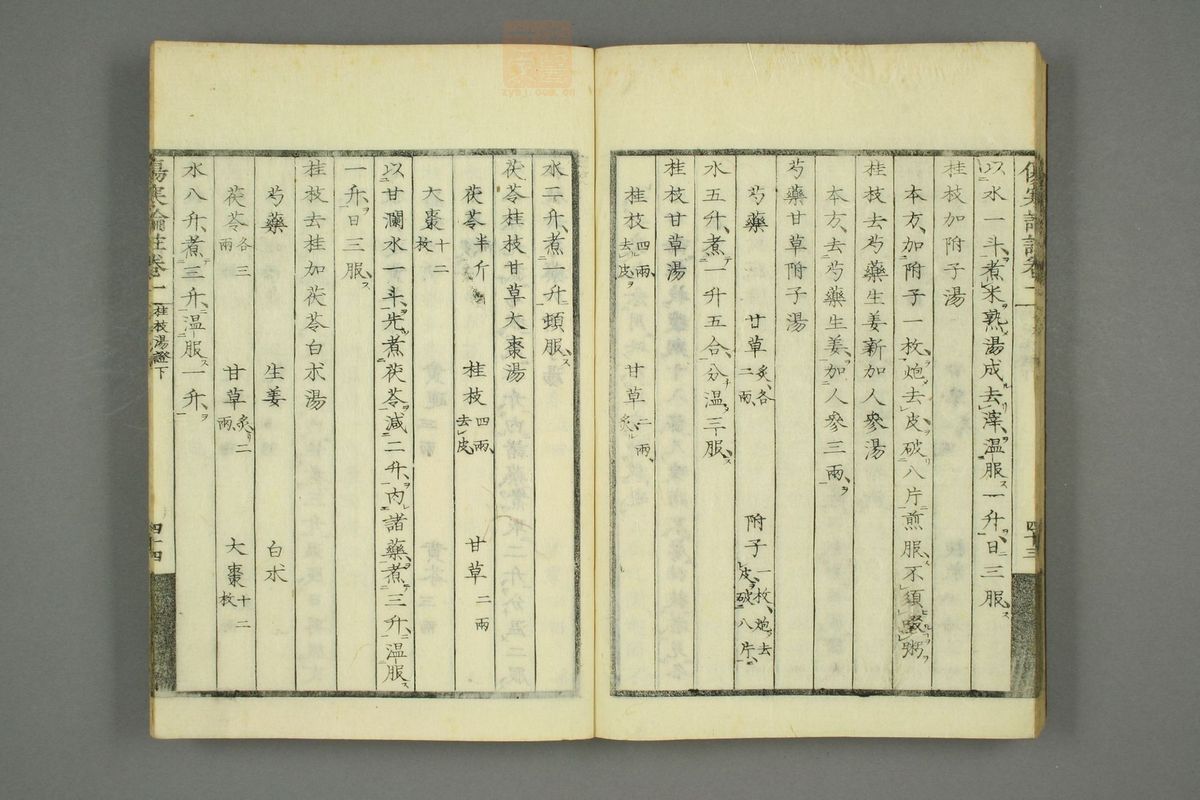 以水一斗煮米熟湯成去滓溫服一升日三服
桂枝加附子湯
本方加附子一枚炮去皮破八片煎服不須啜粥
桂枝去芍藥生姜新加人參湯
本方去芍藥生姜加人參三兩
芍藥甘草附子湯
芍藥 甘草炙各二兩 附子一枚炮去皮破八片
水五升煮一升五合分溫三服
桂枝甘草湯
桂枝四兩去皮 甘草二兩炙
水三升煮一升頓服
茯苓桂枝甘草大棗湯
茯苓半斤 桂枝四兩去皮 甘草二兩
大棗十二枚
以甘瀾水一斗先煮茯苓減二升內諸藥煮三升溫服
一升日三服
桂枝去桂加茯苓白朮湯
芍藥 生姜 白朮
茯苓各三兩 甘草炙二兩 大棗十二枚
水八升煮三升溫服一升
傷寒論註卷二 桂枝湯證下 四十四